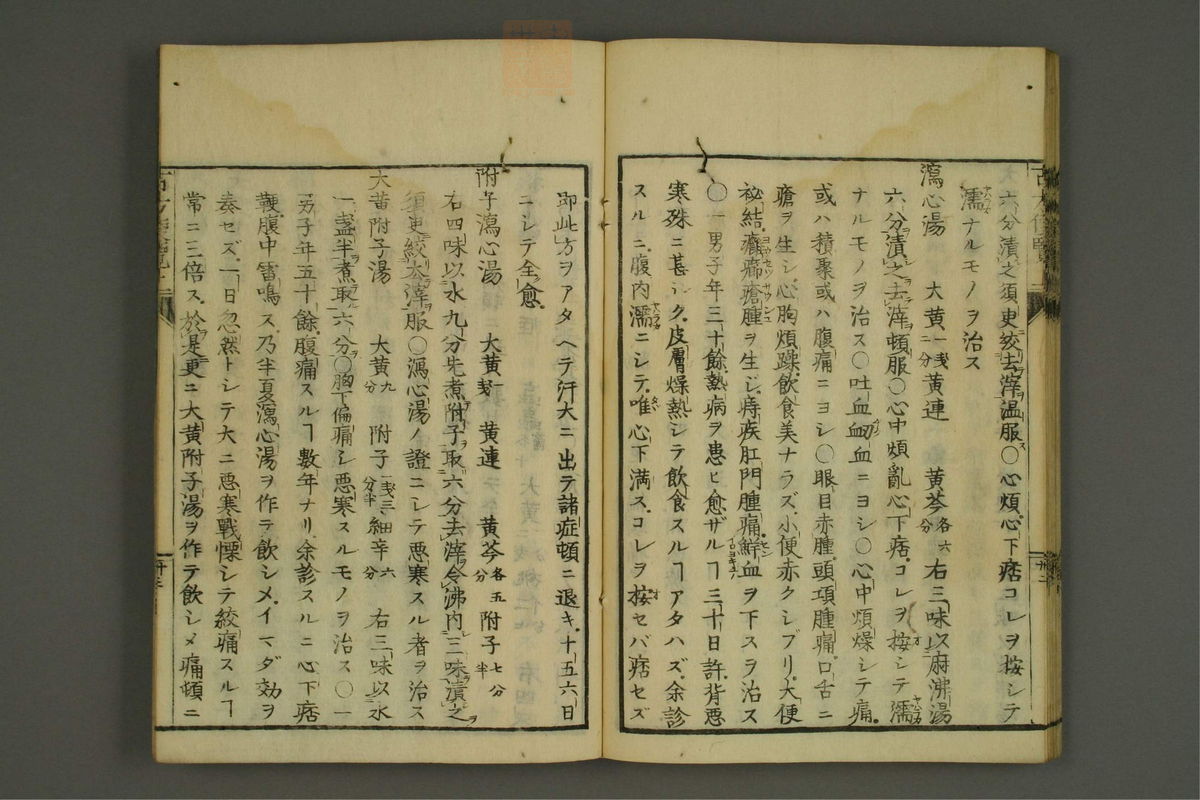 六分漬之須臾絞去滓温服〇心煩心下痞コレヲ按シテ
濡ナルモノヲ治ス
瀉心湯　大黄一戔二分黄連　黄芩各六分右三味以麻沸湯
六分漬之去滓頓服〇心中煩亂心下痞コレヲ按シテ濡
ナルモノヲ治ス〇吐血衂血ニヨシ〇心中煩燥シテ痛
或ハ積聚或ハ腹痛ニヨシ〇眼目赤腫頭項腫痛口舌ニ
瘡ヲ生シ心胸煩躁飲食美ナラズ小便赤クシブリ大便
祕結癰癤瘡腫ヲ生ジ痔疾肛門腫痛鮮血ヲ下スヲ治ス
〇一男子年三十餘熱病ヲ患ヒ愈ザルヿ三十日許背悪
寒殊ニ甚シク皮膚燥熱シテ飲食スルヿアタハズ余診
スルニ腹内濡ニシテ唯心下満スコレヲ按セバ痞セズ
即此方ヲアタヘテ汗大ニ出テ諸症頓ニ退キ十五六日
ニシテ全愈
附子瀉心湯　大黄一戔　黄連　黄芩各五分附子七分半
右四味以水九分先煮附子取六分去滓令沸内三味漬之
須臾絞去滓服〇瀉心湯ノ證ニシテ悪寒スル者ヲ治ス
大黄附子湯　大黄九分　附子一戔三分半細辛六分　右三味以水
一盞半煮取六分〇胸下偏痛シ悪寒スルモノヲ治ス〇一
男子年五十餘腹痛スルヿ數年ナリ余診スルニ心下痞
鞕腹中雷鳴ス乃半夏瀉心湯ヲ作テ飲シメイマダ効ヲ
奏セズ一日忽然トシテ大ニ悪寒戰慄シテ絞痛スルヿ
常ニ三倍ス於是更ニ大黄附子湯ヲ作テ飲シメ痛頓ニ